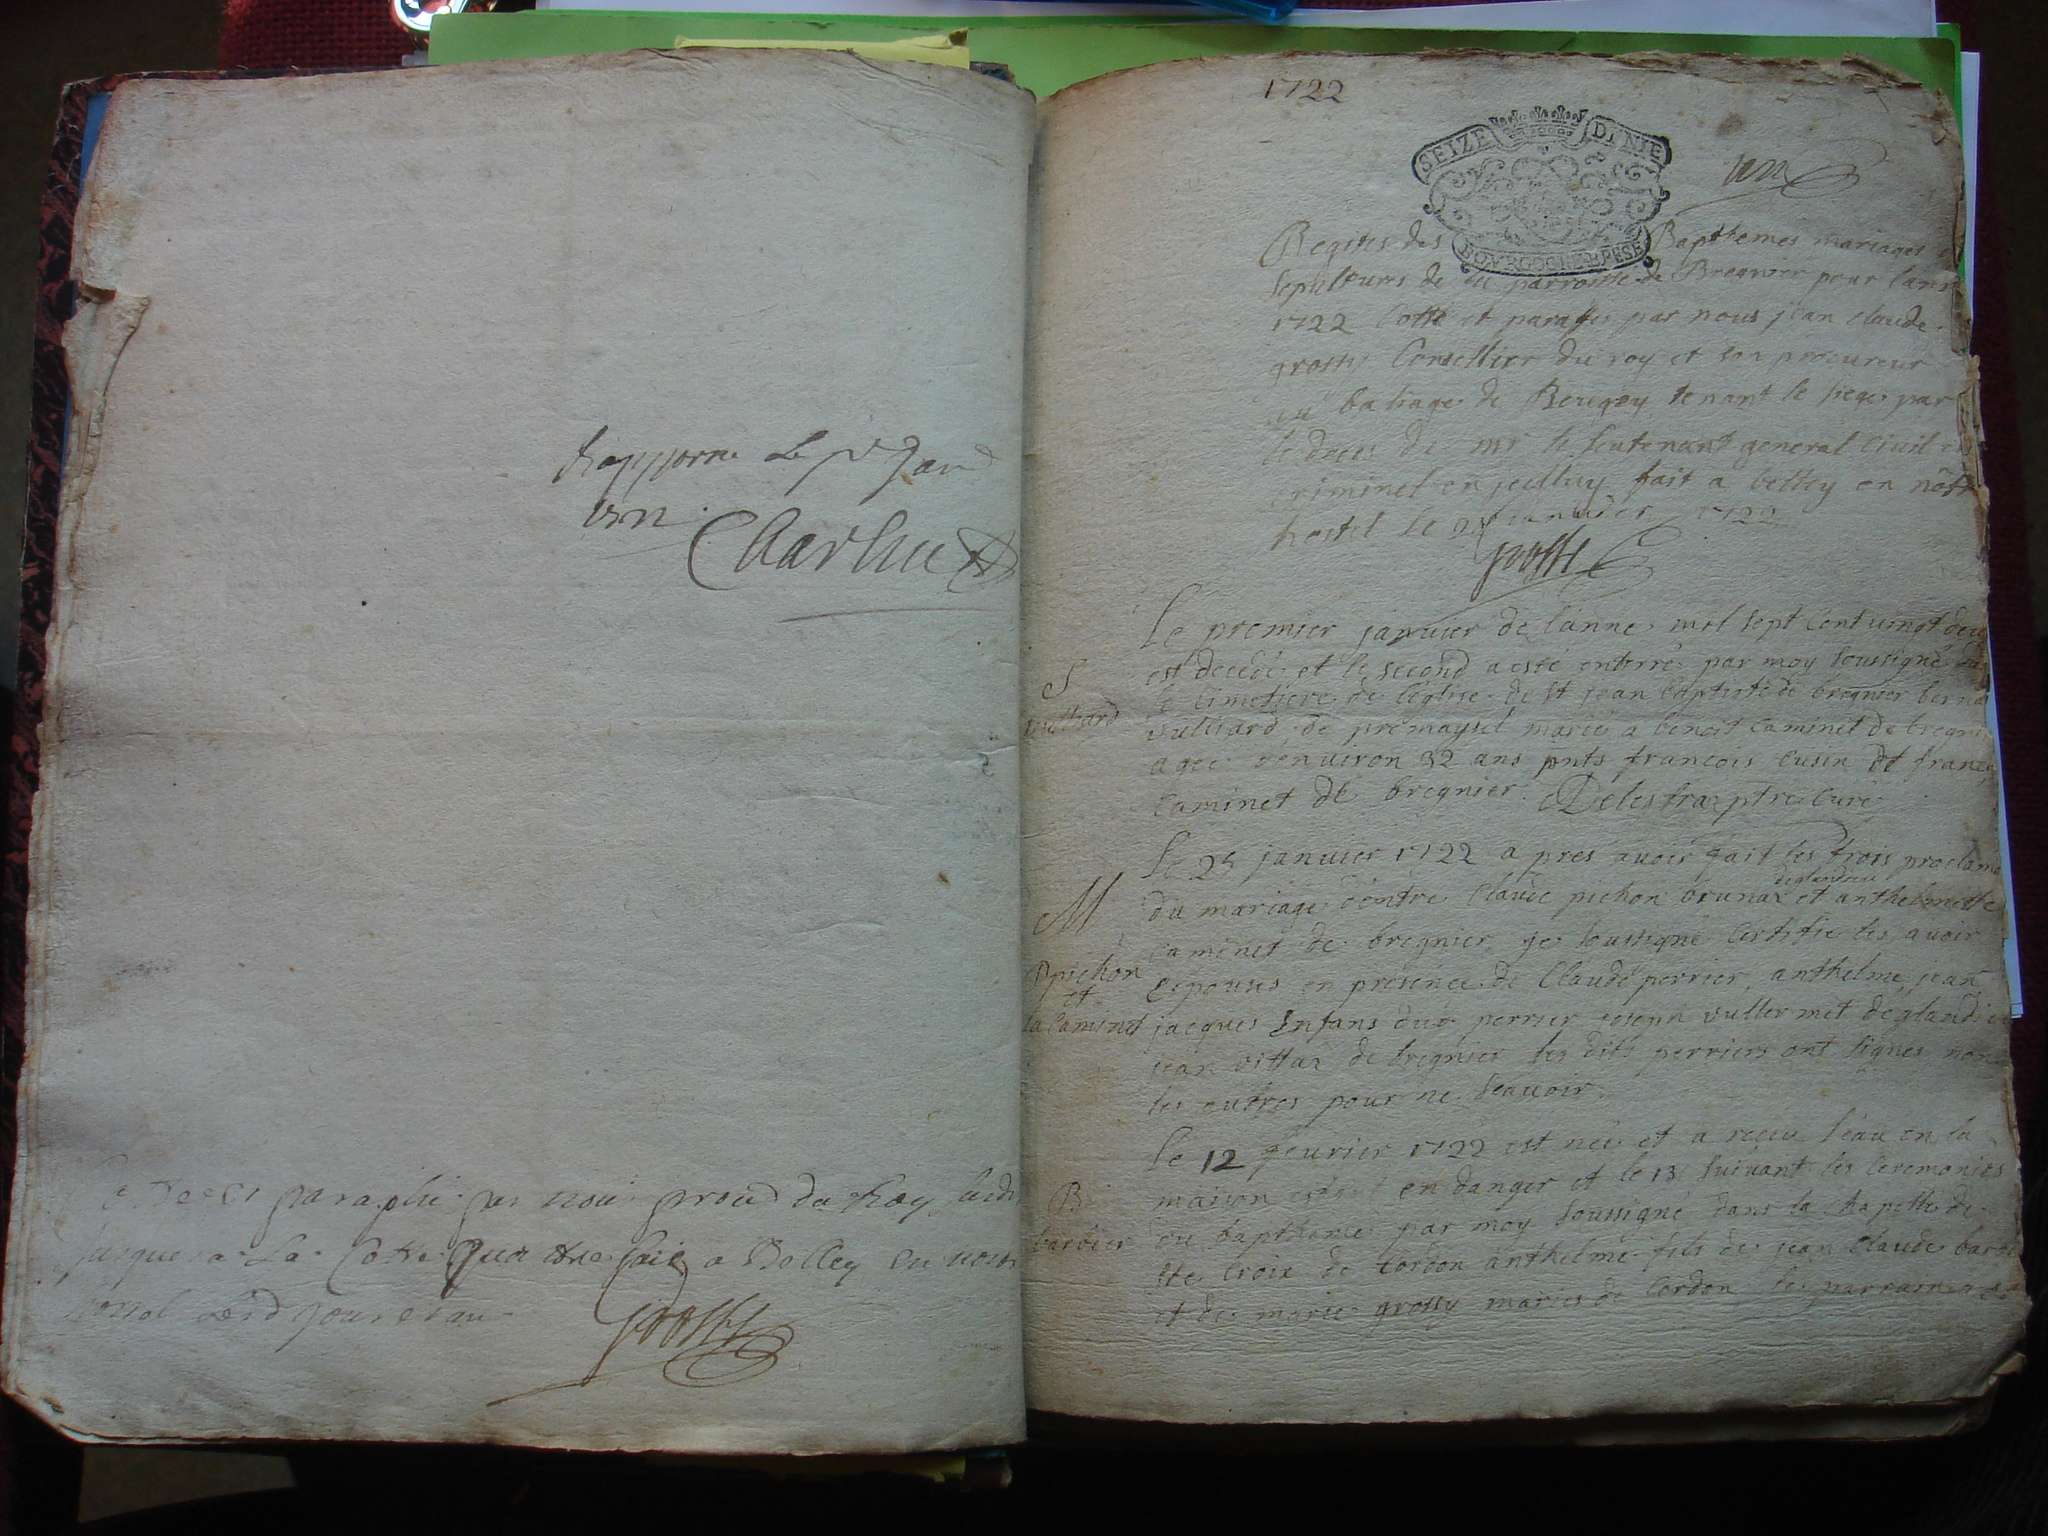 Charlin
paraphé par nous procu du Roy
Jusques a La Cotte quatre a Belley en nostre
Grossy
1722
SEIZE DENIE
BOVRGOGNE BRESSE
un
Registre des Bapthemes mariages
sepultures de la parroisse de Bregnier pour lann
1722 Cotté et paraffé par nous jean claude
grossy Conseillier du roy et son procureur
au baliage de Beugey tenant le siege par
le deces de mr le lieutenant general Civil et
criminel en jcelluy fait a belley en nostre
hostel le janvier 1722
Grossy
Le premier janvier de lanne mil sept cent vingt deux
est decedé et le second a esté enterré par moy soussigné
S
le cimetiere de leglise de st jean baptiste de bregnier
vulliard
vulliard de premaysel marié a benoit caminet de bregni
agee denviron 32 ans pnts francois cusin et franco
caminet de bregnier. Delestraz ptre curé
Le 25 janvier 1722 a pres avoir fait les trois proclama
deglandieu
M
du mariage dentre Claude pichon brunaz et anthelmette
caminet de bregnier je soussigné certifie les avoir
pichon
epousés en presence de Claude perrier, anthelme, jean
et
la Caminet
jacques Enfans dud perrier joseph vullermet de glandie
jean vittaz de bregnier les dits perriers ont signes non
les autres pour ne scavoir.
Le 12 fevrier 1722 est née et a receu leau en la
maison estant en danger et le 13 suivant les ceremonies
B
du baptheme par moy soussigné dans la chapelle de
barbier
ste Croix de Cordon anthelme fils de jean Claude barbi
et de marie grossy mariés de Cordon le parrain a